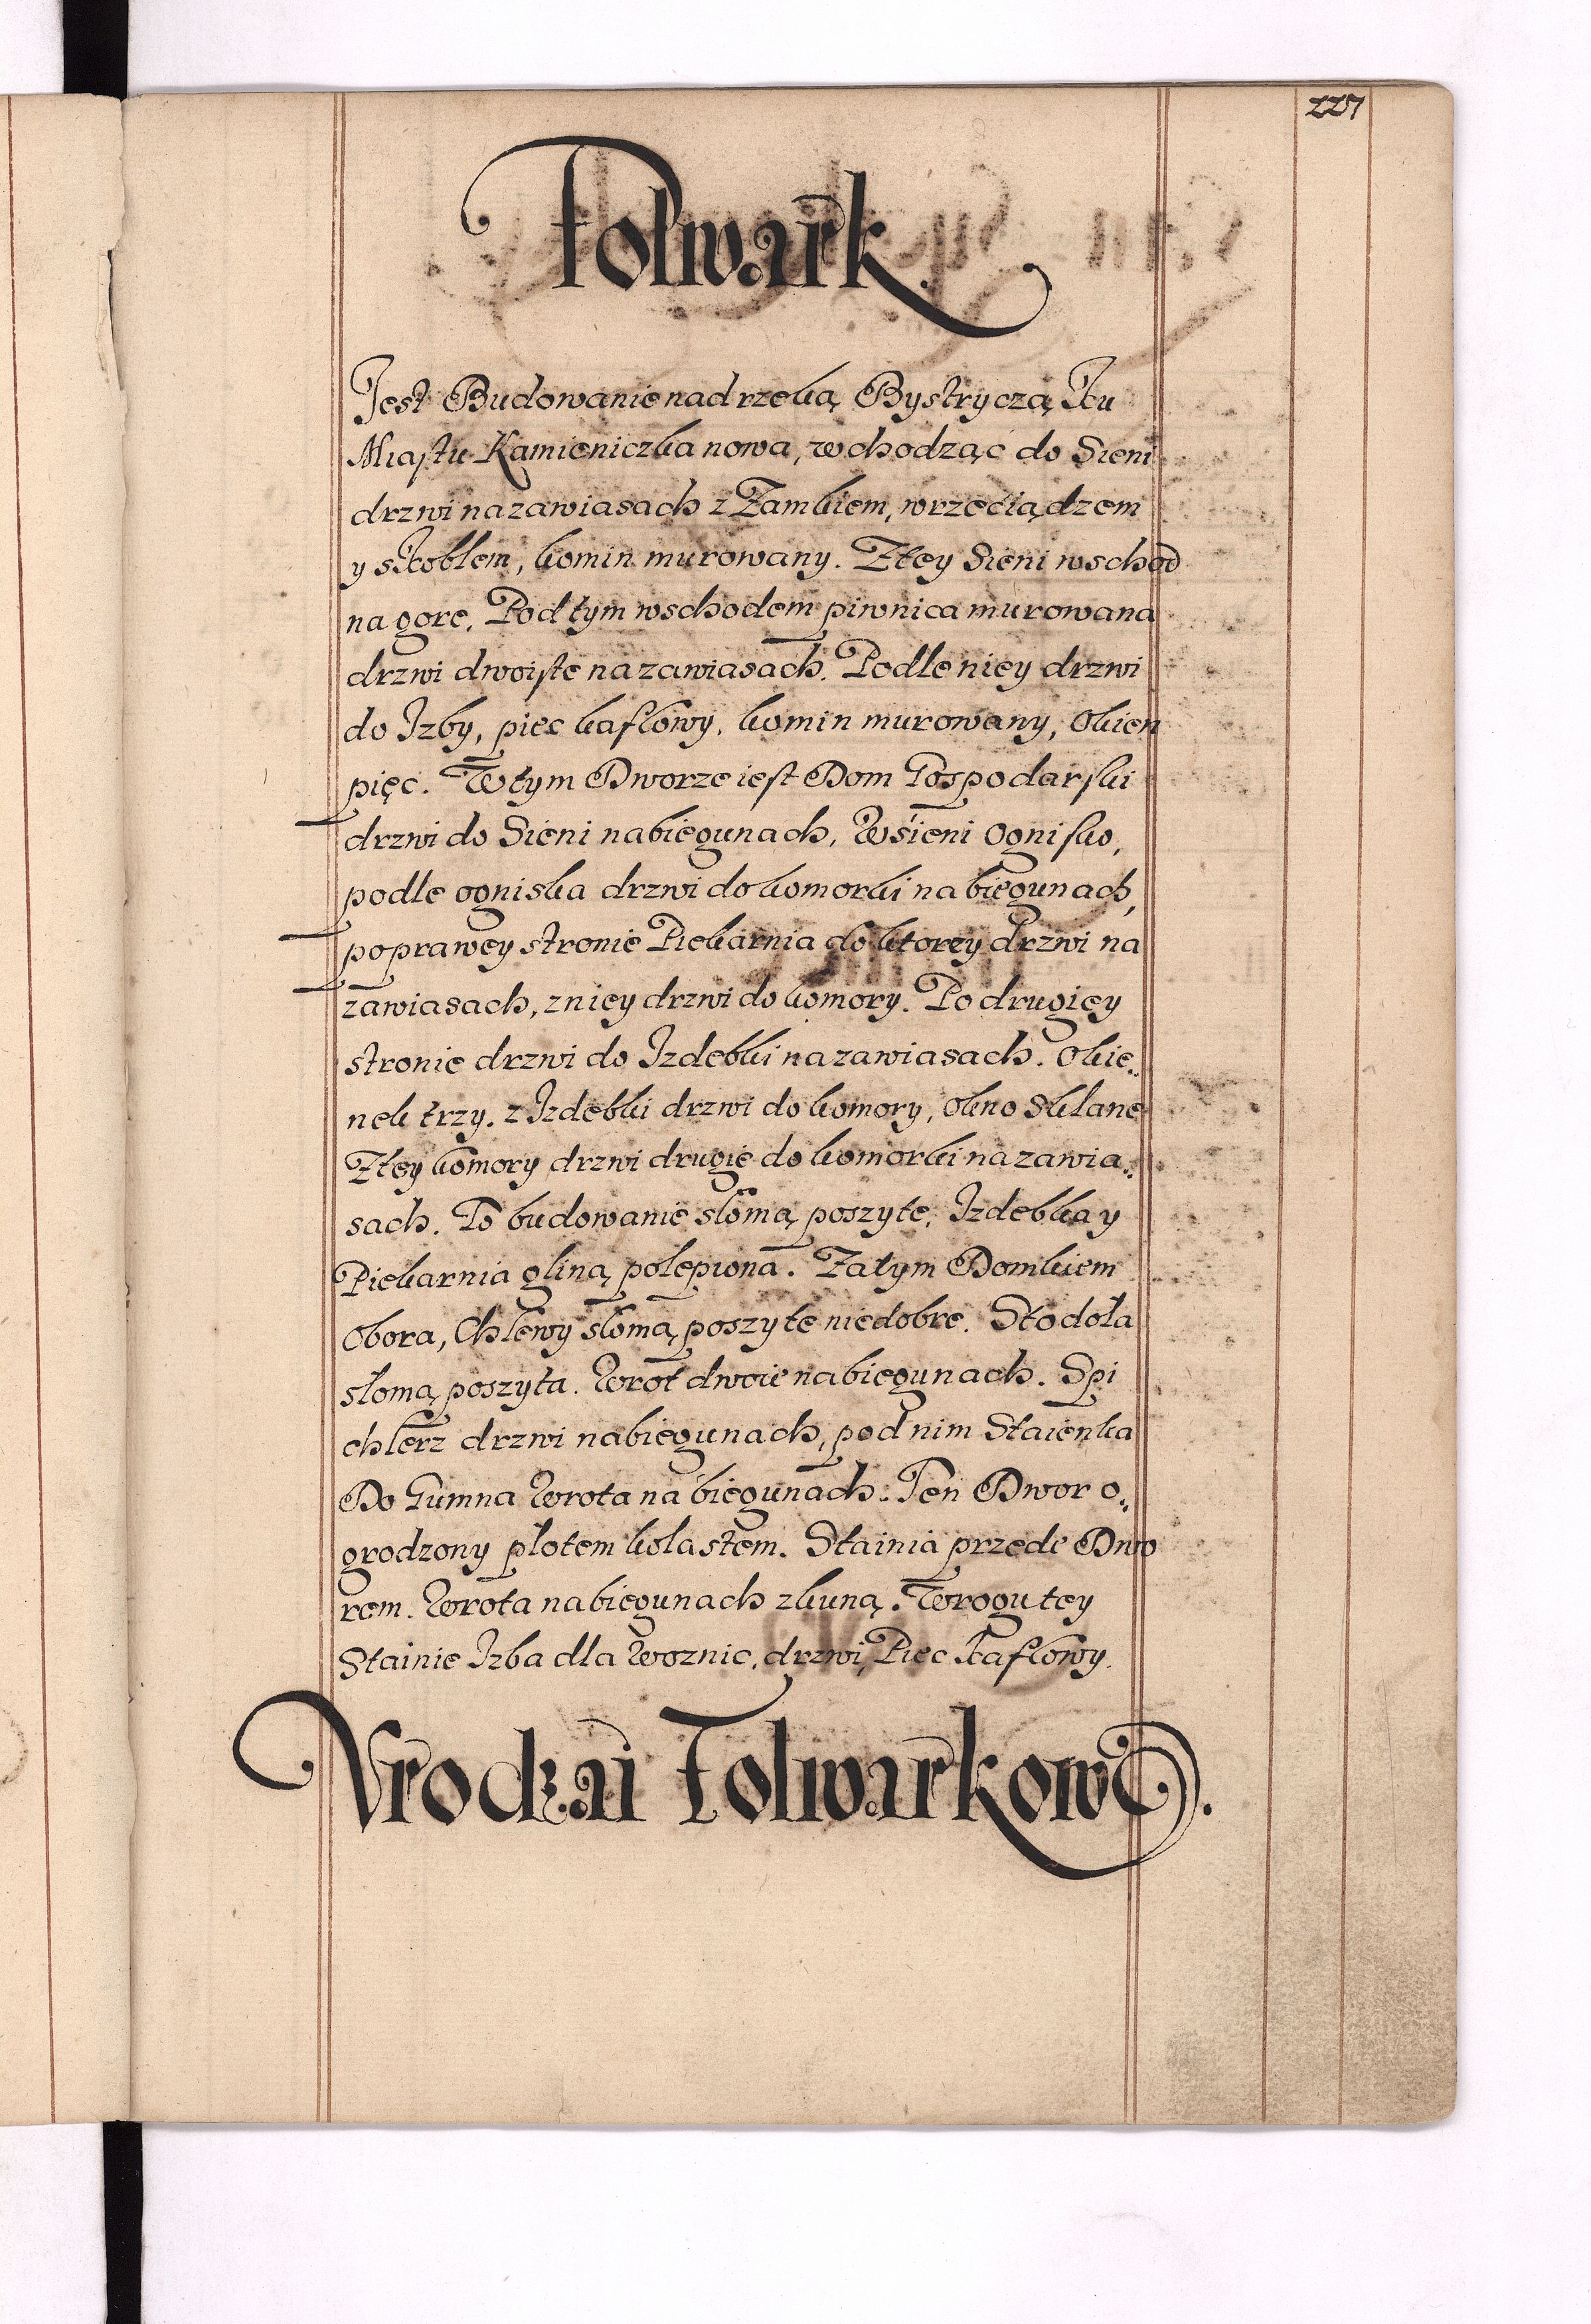 227
Folwark
Jest Budowanie nad rzeką Bystryczą Ku
Miastu Kamieniczka nowa, wchodząć do Sieni
drzwi na zawiasach z Zamkiem, wrzeciądzem
y skoblem, komin murowany. Z tey Sieni wschod
na gore. Pod tym wschodem piwnica murowana
drzwi dwoiste na zawiasach. Podle niey drzwi
do Izby, piec kaflowy, komin murowany, Okien
pięc. W tym Dworze iest Dom Gospodarski
drzwi do Sieni na biegunach, W sieni Ognisko,
podle ogniska drzwi do komorki na biegunach,
po prawey stronie Piekarnia do ktorey drzwi na
zawiasach, z niey drzwi do komory. Po drugiey
stronie drzwi do Izdebki na zawiasach. Okie„
nek trzy. z Izdebki drzwi do komory, Okno Sklane
Z tey komory drzwi drugie do komorki na zawia„
sach. To budowanie słomą poszyte, Izdebka y
Piekarnia gliną polepiona. Za tym Domkiem
Obora, Chlewy słomą poszyte niedobre. Stodoła
słomą poszyta. Wrot dwoie na biegunach. Spi
chlerz drzwi na biegunach, pod nim Staienka
Do Gumna Wrota na biegunach. Ten Dwor o„
grodzony płotem kolastem. Stainia przede Dwo
rem. Wrota na biegunach z kuną. W rogu tey
Stainie Izba dla Woznic, drzwi, Piec Kaflowy.
Vrodzai Folwarkowy.